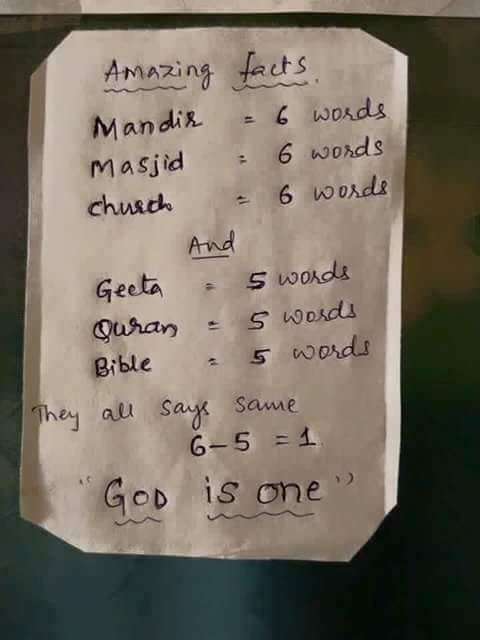 Amazing facts.
Mandir = 6 words
Masjid = 6 words
church = 6 words
And
Geeta = 5 words
Quran = 5 words
Bible = 5 words
They all says same
6-5 = 1
"God is one"